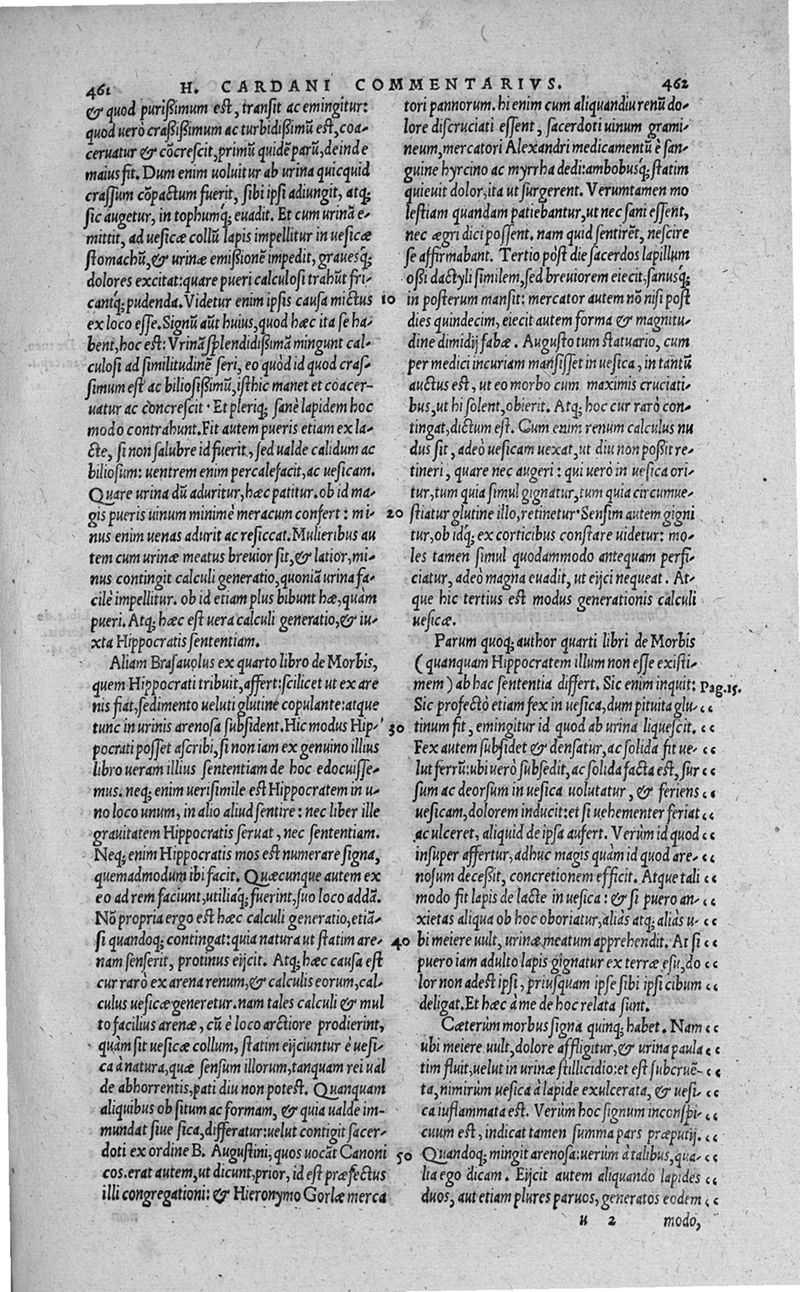 461 H. CARDANI COMMENTARIVS. 462
& quod purißimum est, transit ac emingitur:
quod uerò craßißimum ac turbidißimũ est, coa-
ceruatur & cõcrescit, primũ quidẽ parũ, deinde
maius fit. Dum enim uoluitur ab urina quicquid
crassum cõpactum fuerit, sibi ipsi adiungit, atq;
sic augetur, in tophumq; euadit. Et cum urinã e-
mittit, ad uesicæ collũ lapis impellitur in uesicæ
stomachũ, & urinæ emißionẽ impedit, grauesq;
dolores excitat: quare pueri calculosi trahũt fri-
cantq; pudenda. Videtur enim ipsis causa mictus
ex loco esse. Signũ aũt huius, quod hæc ita se ha-
bent, hoc est: Vrinã splendidißimã mingunt cal-
culosi ad similitudinẽ seri, eo quòd id quod cras-
simum est ac biliosißimũ, isthic manet et coacer-
uatur ac concrescit. Et pleriq; sanè lapidem hoc
modo contrahunt. Fit autem pueris etiam ex la-
cte, si non salubre id fuerit, sed ualde calidum ac
biliosum: uentrem enim percalefacit, ac uesicam.
Quare urina dũ aduritur, hæc patitur. ob id ma-
gis pueris uinum minimè meracum confert: mi-
nus enim uenas adurit ac resiccat. Mulieribus au
tem cum urinæ meatus breuior sit, & latior, mi-
nus contingit calculi generatio, quoniã urina fa-
cilè impellitur. ob id etiam plus bibunt hæ, quàm
pueri. Atq; hæc est uera calculi generatio, & iu-
xta Hippocratis sententiam.
Aliam Brasauolus ex quarto libro de Morbis,
quem Hippocrati tribuit, affert: scilicet ut ex are
nis fiat, sedimento ueluti glutine copulante: atque
tunc in urinis arenosa subsident. Hic modus Hip-
pocrati posset ascribi, si non iam ex genuino illius
libro ueram illius sententiam de hoc edocuisse-
mus. neq; enim uerisimile est Hippocratem in u-
no loco unum, in alio aliud sentire: nec liber ille
grauitatem Hippocratis seruat, nec sententiam.
Neq; enim Hippocratis mos est numerare signa,
quemadmodum ibi facit. Quæcunque autem ex
eo ad rem faciunt, utiliaq; fuerint, suo loco addã.
Nõ propria ergo est hæc calculi generatio, etiã-
si quandoq; contingat: quia natura ut statim are-
nam senserit, protinus eijcit. Atq; hæc causa est
cur rarò ex arena renum, & calculis eorum, cal-
culus uesicæ generetur. nam tales calculi & mul
to facilius arenæ, cũ è loco arctiore prodierint,
quàm sit uesicæ collum, statim eijciuntur è uesi-
ca à natura, quæ sensum illorum, tanquam rei ual
de abhorrentis, pati diu non potest. Quanquam
aliquibus ob situm ac formam, & quia ualde im-
mundat siue sica, differatur: uelut contigit sacer-
doti ex ordine B. Augustini, quos uocãt Canoni
cos. erat autem, ut dicunt, prior, id est præfectus
illi congregationi: & Hieronymo Gorlæ merca
tori pannorum. hi enim cum aliquandiu renũ do-
lore discruciati essent, sacerdoti uinum grami-
neum, mercatori Alexandri medicamentũ è san-
guine hyrcino ac myrrha dedi: ambobusq; statim
quieuit dolor, ita ut surgerent. Verumtamen mo
lestiam quandam patiebantur, ut nec sani essent,
nec ægri dici possent. nam quid sentirẽt, nescire
se affirmabant. Tertio pòst die sacerdos lapillum
oßi dactyli similem, sed breuiorem eiecit, sanusq;
10 in posterum mansit: mercator autem nõ nisi post
dies quindecim, eiecit autem forma & magnitu-
dine dimidij fabæ. Augusto tum statuario, cum
per medici incuriam mansisset in uesica, in tantũ
auctus est, ut eo morbo cum maximis cruciati-
bus, ut hi solent, obierit. Atq; hoc cur rarò con-
tingat, dictum est. Cum enim renum calculus nu
dus sit, adeò uesicam uexat, ut diu non poßit re-
tineri, quare nec augeri: qui uerò in uesica ori-
tur, tum quia simul gignatur, tum quia circumue-
20 stiatur glutine illo, retinetur. Sensim autem gigni
tur, ob idq; ex corticibus constare uidetur: mo-
les tamen simul quodammodo antequam perfi-
ciatur, adeò magna euadit, ut eijci nequeat. At-
que hic tertius est modus generationis calculi
uesicæ.
Parum quoq; author quarti libri de Morbis
(quanquam Hippocratem illum non esse existi-
mem) ab hac sententia differt. Sic enim inquit: Pag.15.
Sic profectò etiam fex in uesica, dum pituita glu-
30 tinum fit, emingitur id quod ab urina liquescit.
Fex autem subsidet & densatur, ac solida fit ue-
lut ferrũ: ubi uerò subsedit, ac solida facta est, sur
sum ac deorsum in uesica uolutatur, & feriens
uesicam, dolorem inducit: et si uehementer feriat
ac ulceret, aliquid de ipsa aufert. Verùm id quod
insuper affertur, adhuc magis quàm id quod are-
nosum deceßit, concretionem efficit. Atque tali
modo fit lapis de lacte in uesica: & si puero an-
xietas aliqua ob hoc oboriatur, aliàs atq; aliàs u-
40 bi meiere uult, urinæ meatum apprehendit. At si
puero iam adulto lapis gignatur ex terræ esu, do
lor non adest ipsi, priusquam ipse sibi ipsi cibum
deligat. Et hæc à me de hoc relata sunt.
Cæterùm morbus signa quinq; habet. Nam
ubi meiere uult, dolore affligitur, & urina paula
tim fluit, uelut in urinæ stillicidio: et est subcruẽ-
ta, nimirùm uesica à lapide exulcerata, & uesi-
ca iuflammata est. Verùm hoc signum inconspi-
cuum est, indicat tamen summa pars præputij.
50 Quandoq; mingit arenosa: uerùm à talibus, qua-
lia ego dicam. Eijcit autem aliquando lapides
duos, aut etiam plures paruos, generatos eodem
u 2 modo,